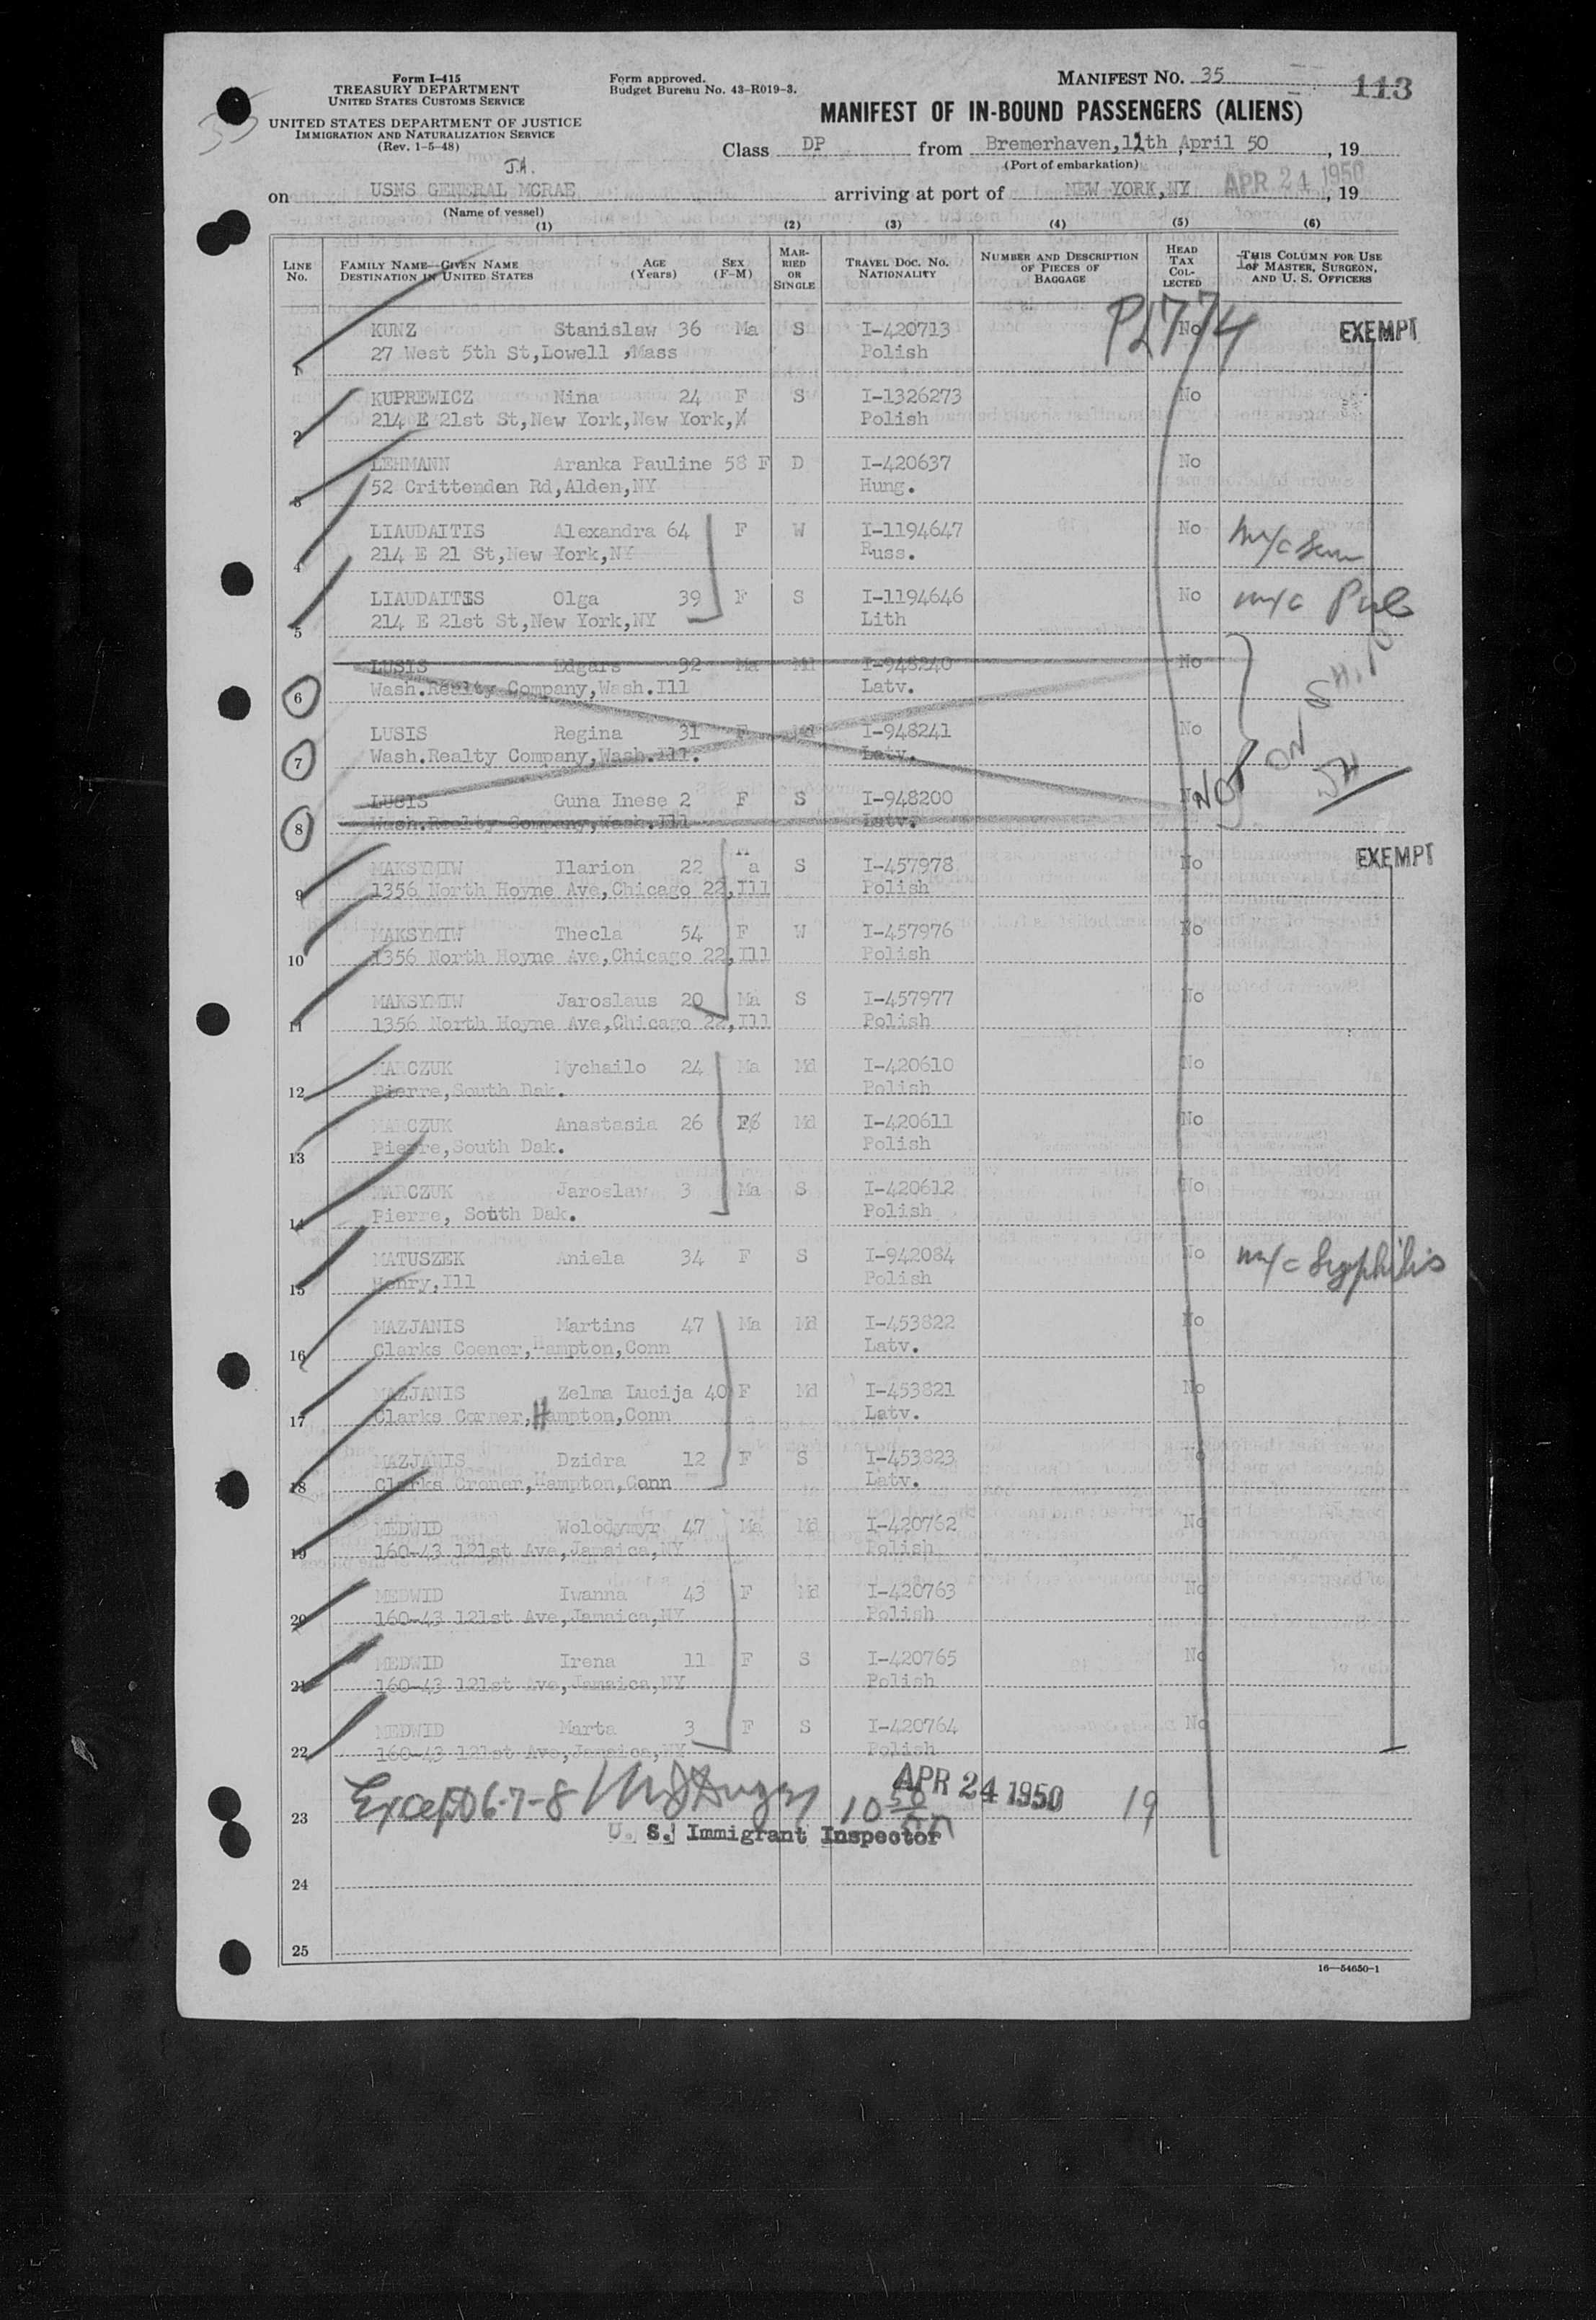 Form I-415
TREASURY DEPARTMENT
UNITED STATES CUSTOMS SERVICE
UNITED STATES DEPARTMENT OF JUSTICE
IMMIGRATION AND NATURALIZATION SERVICE
(Rev. 1-5-48)
Form approved.
Budget Bureau No. 43-R019-3.
MANIFEST NO. 35
113
MANIFEST OF IN-BOUND PASSENGERS (ALIENS)
Class DP from Bremerhaven, 12th, April 50, 19
(Port of embarkation)
on USNS GENERAL MCRAE arriving at port of NEW YORK, NY APR 24 1950, 19
(Name of vessel)
(1) (2) (3) (4) (5) (6)
LINE NO. FAMILY NAME—GIVEN NAME DESTINATION IN UNITED STATES AGE (Years) SEX (F-M) MARRIED OR SINGLE TRAVEL DOC. NO. NATIONALITY NUMBER AND DESCRIPTION OF PIECES OF BAGGAGE HEAD TAX COLLECTED THIS COLUMN FOR USE OF MASTER, SURGEON, AND U. S. OFFICERS
KUNZ Stanislaw 36 Ma S I-420713 No EXEMPT
1 27 West 5th St,Lowell ,Mass Polish
KUPREWICZ Nina 24 F S I-1326273 No
2 214 E 21st St,New York,New York, Polish
LEHMANN Aranka Pauline 58 F D I-420637 No
3 52 Crittenden Rd,Alden,NY Hung.
LIAUDAITIS Alexandra 64 F W I-1194647 No
4 214 E 21 St,New York,NY Russ.
LIAUDAITIS Olga 39 F S I-1194646 No m/c
5 214 E 21st St,New York,NY Lith
LUSIS Edgars 92 Ma Md I-948240 No
6 Wash.Realty Company,Wash.Ill Latv.
LUSIS Regina 31 F Md I-948241 No
7 Wash.Realty Company,Wash.Ill. Latv.
NOT ON SHIP
LUSIS Guna Inese 2 F S I-948200 No
8 Wash.Realty Company,Wash.Ill Latv.
MAKSYMIW Ilarion 22 Ma S I-457978 No EXEMPT
9 1356 North Hoyne Ave,Chicago 22,Ill Polish
MAKSYMIW Thecla 54 F W I-457976 No
10 1356 North Hoyne Ave,Chicago 22,Ill Polish
MAKSYMIW Jaroslaus 20 Ma S I-457977 No
11 1356 North Hoyne Ave,Chicago 22,Ill Polish
MARCZUK Mychailo 24 Ma Md I-420610 No
12 Pierre,South Dak. Polish
MARCZUK Anastasia 26 F Md I-420611 No
13 Pierre,South Dak. Polish
MARCZUK Jaroslaw 3 Ma S I-420612 No
14 Pierre, South Dak. Polish
MATUSZEK Aniela 34 F S I-942084 No m/c Syphilis
15 Henry,Ill Polish
MAZJANIS Martins 47 Ma Md I-453822 No
16 Clarks Coener,Hampton,Conn Latv.
MAZJANIS Zelma Lucija 40 F Md I-453821 No
17 Clarks Corner,Hampton,Conn Latv.
MAZJANIS Dzidra 12 F S I-453823
18 Clarks Croner,Hampton,Conn Latv.
MEDWID Wolodymyr 47 Ma Md I-420762 No
19 160-43 121st Ave,Jamaica,NY Polish
MEDWID Iwanna 43 F Md I-420763 No
20 160-43 121st Ave,Jamaica,NY Polish
MEDWID Irena 11 F S I-420765 No
21 160-43 121st Ave,Jamaica,NY Polish
MEDWID Marta 3 F S I-420764 No
22 160-43 121st Ave,Jamaica,NY Polish
23 Except 6-7-8 APR 24 1950 19
U. S. Immigrant Inspector
24
25
16—54650-1